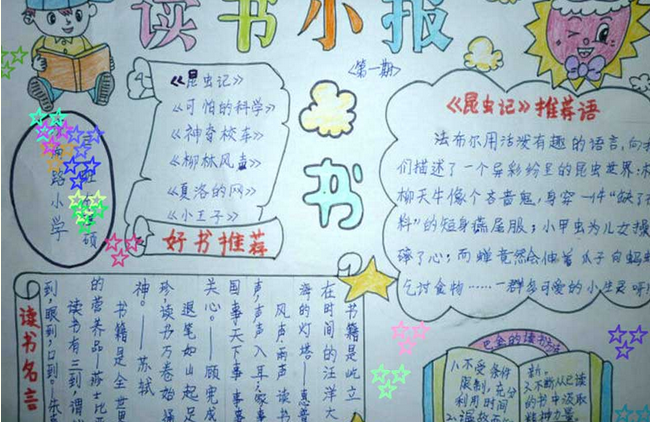 读书小报
《第一期》
《昆虫记》
《可怕的科学》
《神奇校车》
《柳林风声》
《夏洛的网》
《小王子》
好书推荐
书
《昆虫记》推荐语
法布尔用活没有趣的语言,向
们描述了一个异彩纷呈的昆虫世界:
柳天牛像个吝啬鬼,身穿一件“缺了
料”的短身燕尾服;小甲虫为儿女操
碎了心;而蝉竟然会伸着爪子向蚂
乞讨食物……一群多可爱的小生灵呀!
路小学
硕
读书名言
书籍是屹立
在时间的汪洋大
海的灯塔——惠普
风声雨声读书
声,声声入耳;家事
国事天下事事事
关心。——顾宪成
退笔如山起足
珍,读书万卷始通
神。——苏轼
书籍是全世
的营养品——莎士比亚
读书有三到,谓
到,眼到,口到——朱
巴金的读书方法
1.不受条件
限制,充分
利用时间
新。
3.不断从已读
的书中汲取
精神力量。